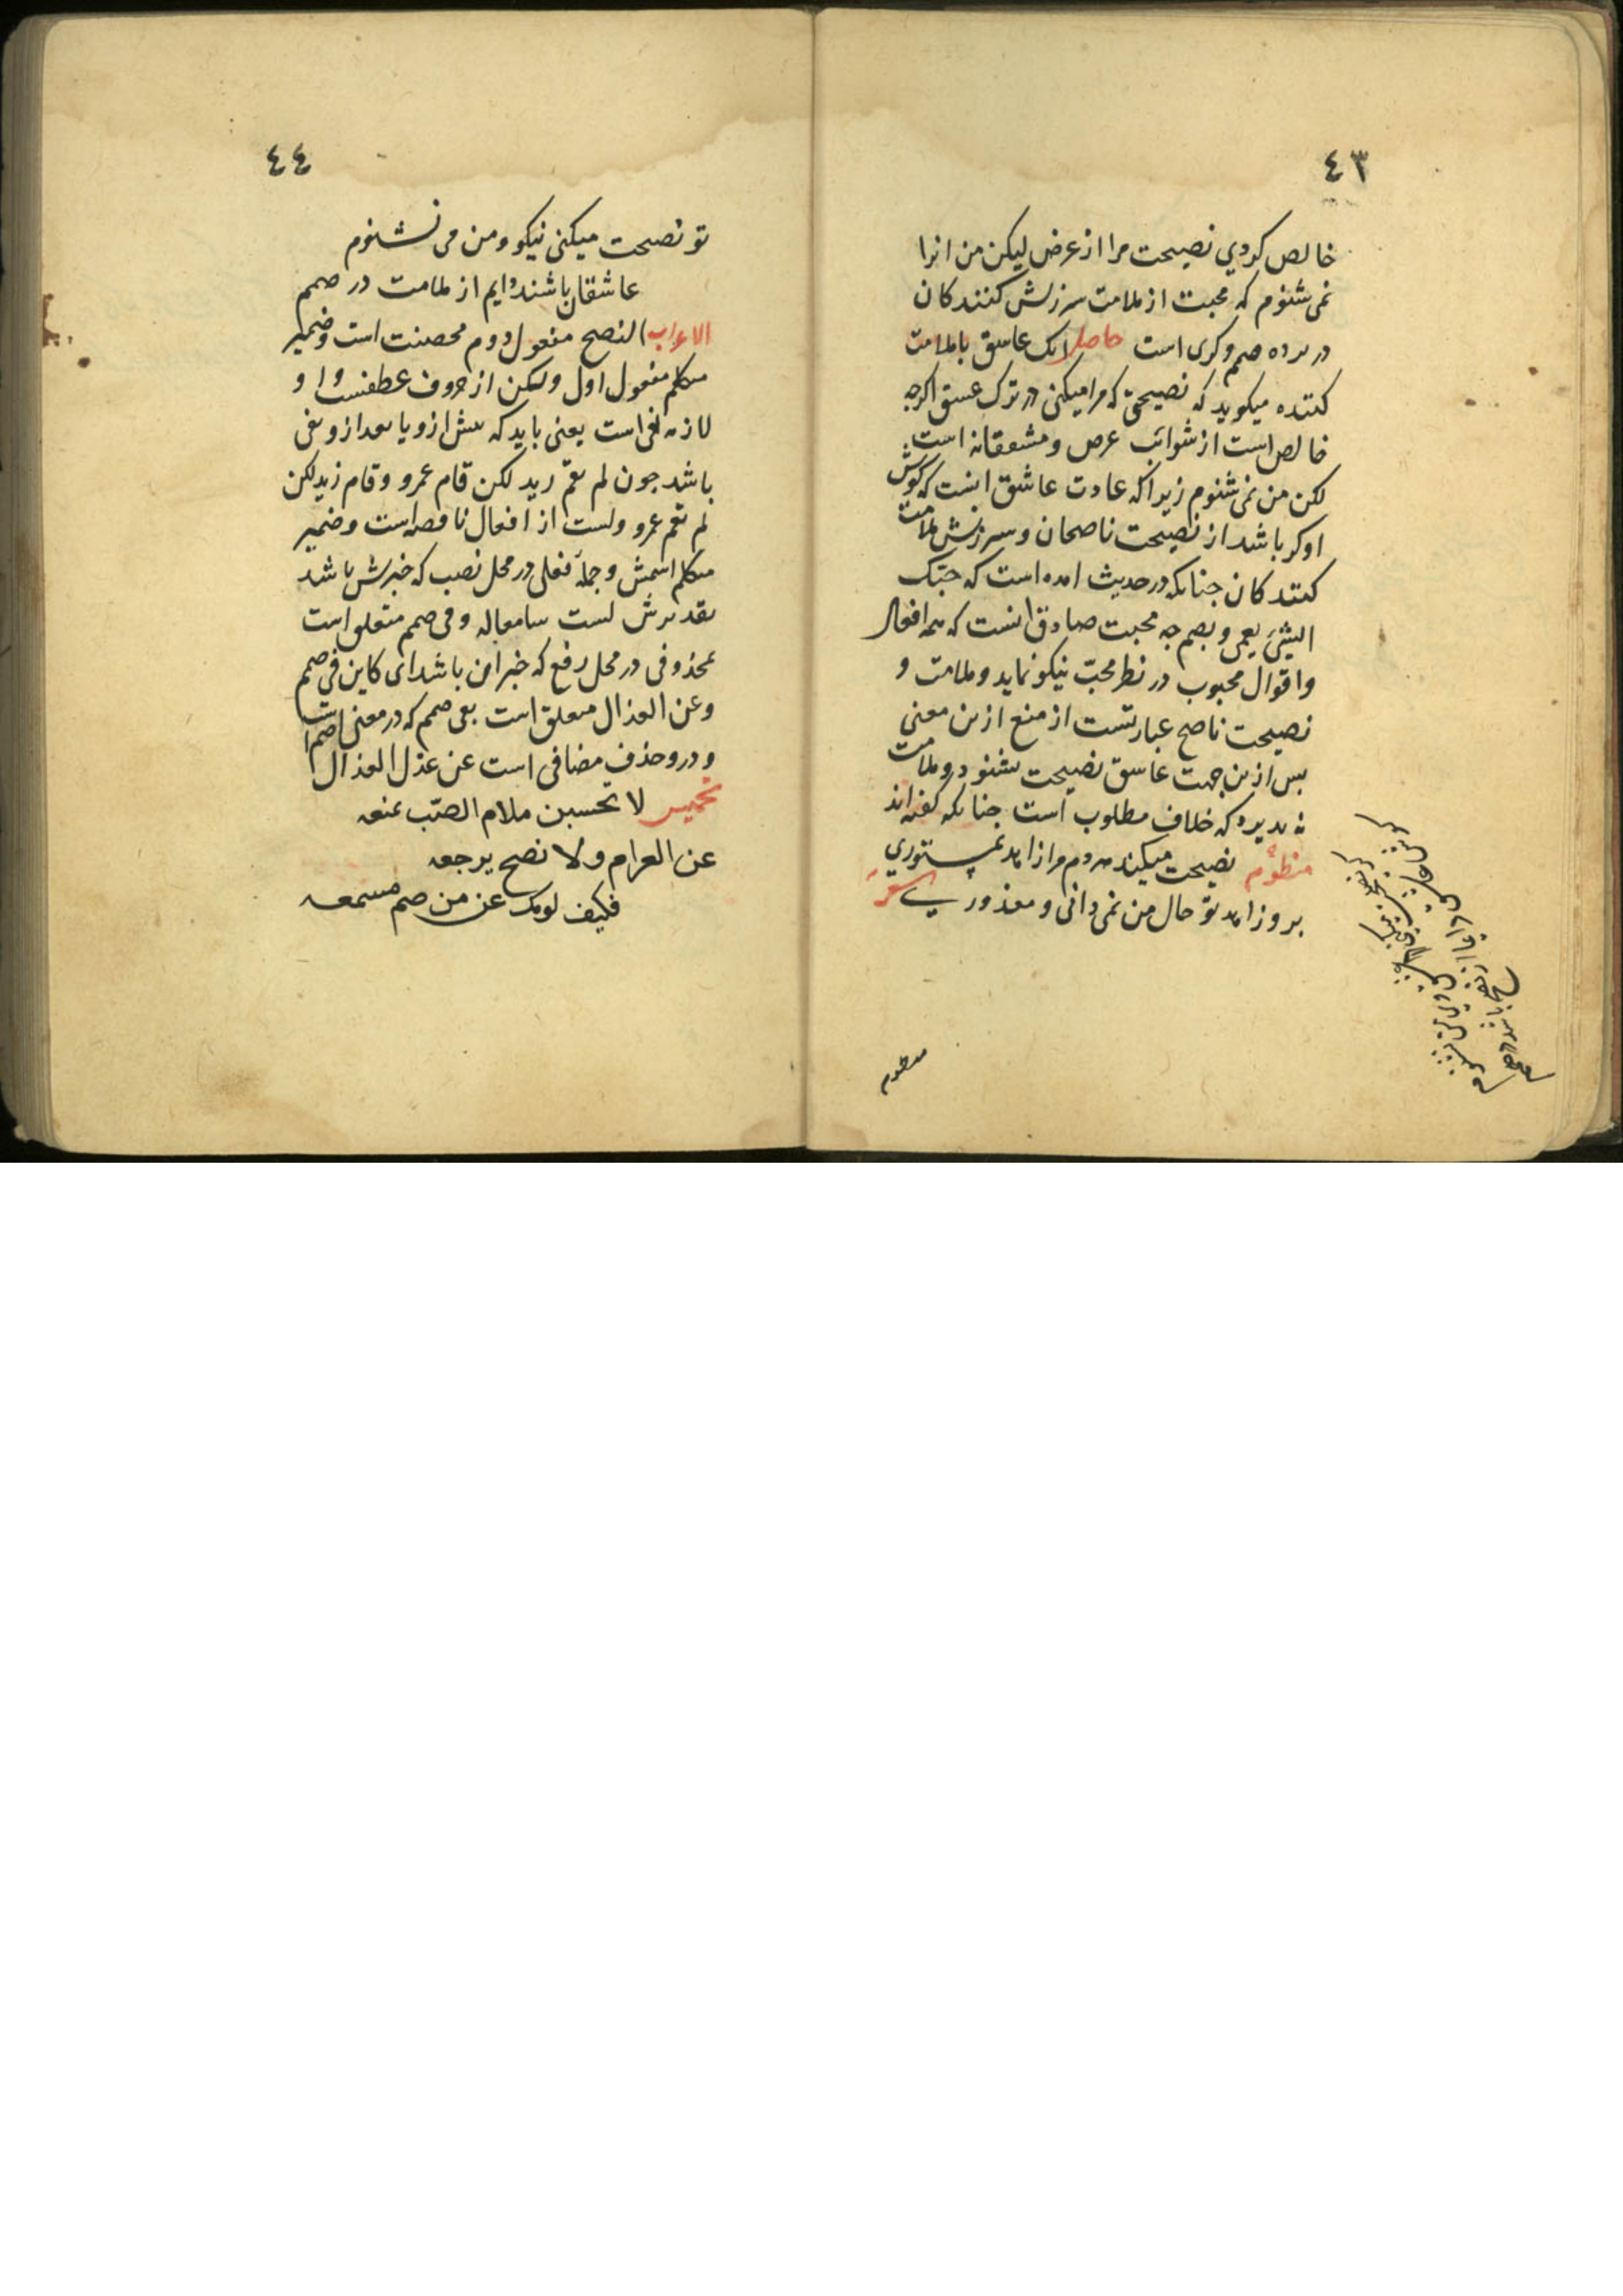 ٤٣
خالص كردي نصيحت مرا از عرض ليكن من انرا
نمى شنوم كه محبت از ملامت سرزنش كنندكان
در پرده صمم و كرى است حاصل انك عاشق با ملامت
كننده ميكويد كه نصيحتى كه مرا ميكنى در ترك عشق اكرچه
خالص است از شوائب عرض و مشفقانه است
لكن من نمى شنوم زيرا كه عادت عاشق انست كه كوش
او كر باشد از نصيحت ناصحان و سرزنش ملامت
كنندكان چنانكه در حديث امده است كه حبّك
الشئ يعمى ويصم چه محبت صادق انست كه همه افعال
واقوال محبوب در نظر محبّ نيكو نمايد وملامت و
نصيحت ناصح عبارتست از منع ازين معنى
پس ازين جهت عاشق نصيحت نشنود و ملامت
نه پذيرد كه خلاف مطلوب است چنانكه كفته اند
منظوم نصيحت ميكند مردم مرا زاهد بمستوري
برو زاهد تو حال من نمى دانى و معذوري شعر
منظوم
٤٤
تو نصحت ميكنى نيكو ومن مى نشنوم
عاشقان باشند دايم از ملامت در صمم
الاعراب النصح مفعول دوم محصنت است وضمير
متكلم مفعول اول ولكن از حروف عطفست و او
لازمه نفى است يعنى بايد كه پيش ازو يا بعد ازو نفى
باشد چون لم يقم زيد لكن قام عمرو وقام زيد لكن
لم يقم عمرو ولست از افعال ناقصه است وضمير
متكلم اسمش وجملۀ فعلى در محل نصب كه خبرش باشد
تقديرش لست سامعا له وفى صمم متعلق است
بمحذوفى در محل رفع كه خبر ان باشد اى كاين فى صمم
وعن العذال متعلق است بفى صمم كه در معنى اصم است
ودرو حذف مضافى است عن عذل العذال
تخميس لا تحسبن ملام الصّب يمنعه
عن الغرام ولا نصح يرجعه
فكيف لومك عن من صم مسمعه